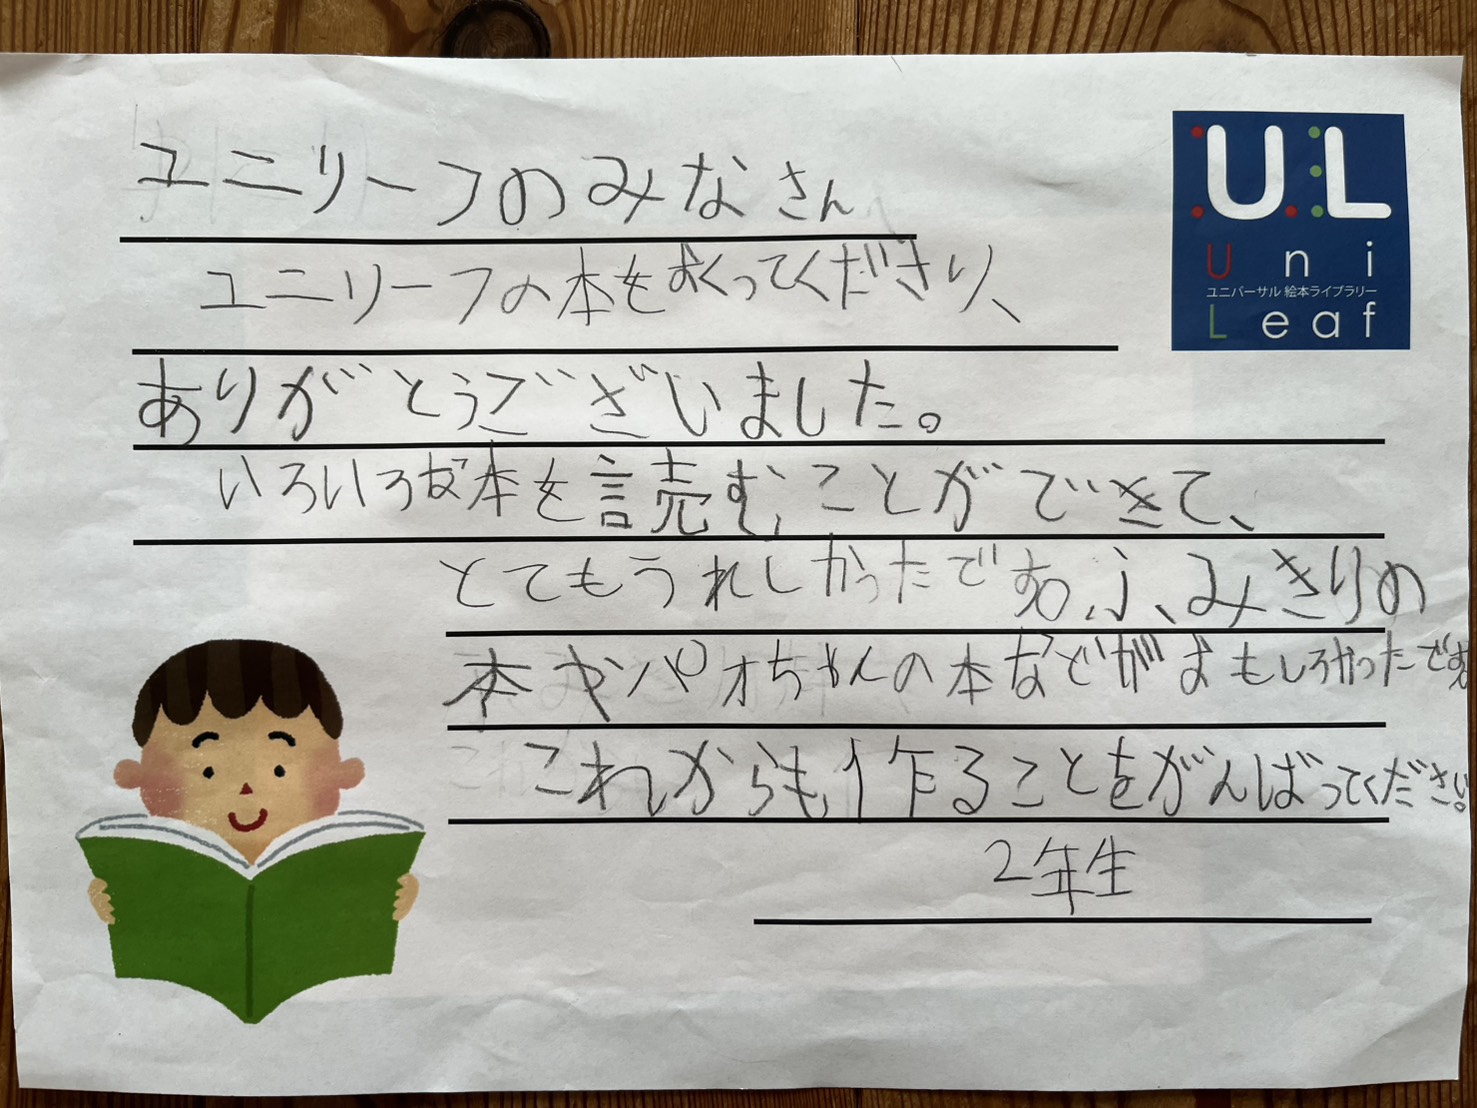 ユニリーフのみなさん
UL
Uni
ユニバーサル 絵本ライブラリー
Leaf
ユニリーフの本をおくってくださり、
ありがとうございました。
いろいろな本を読むことができて、
とてもうれしかったです。ふみきりの
本やパオちゃんの本などがおもしろかったです。
これからも、作ることをがんばってください。
2年生